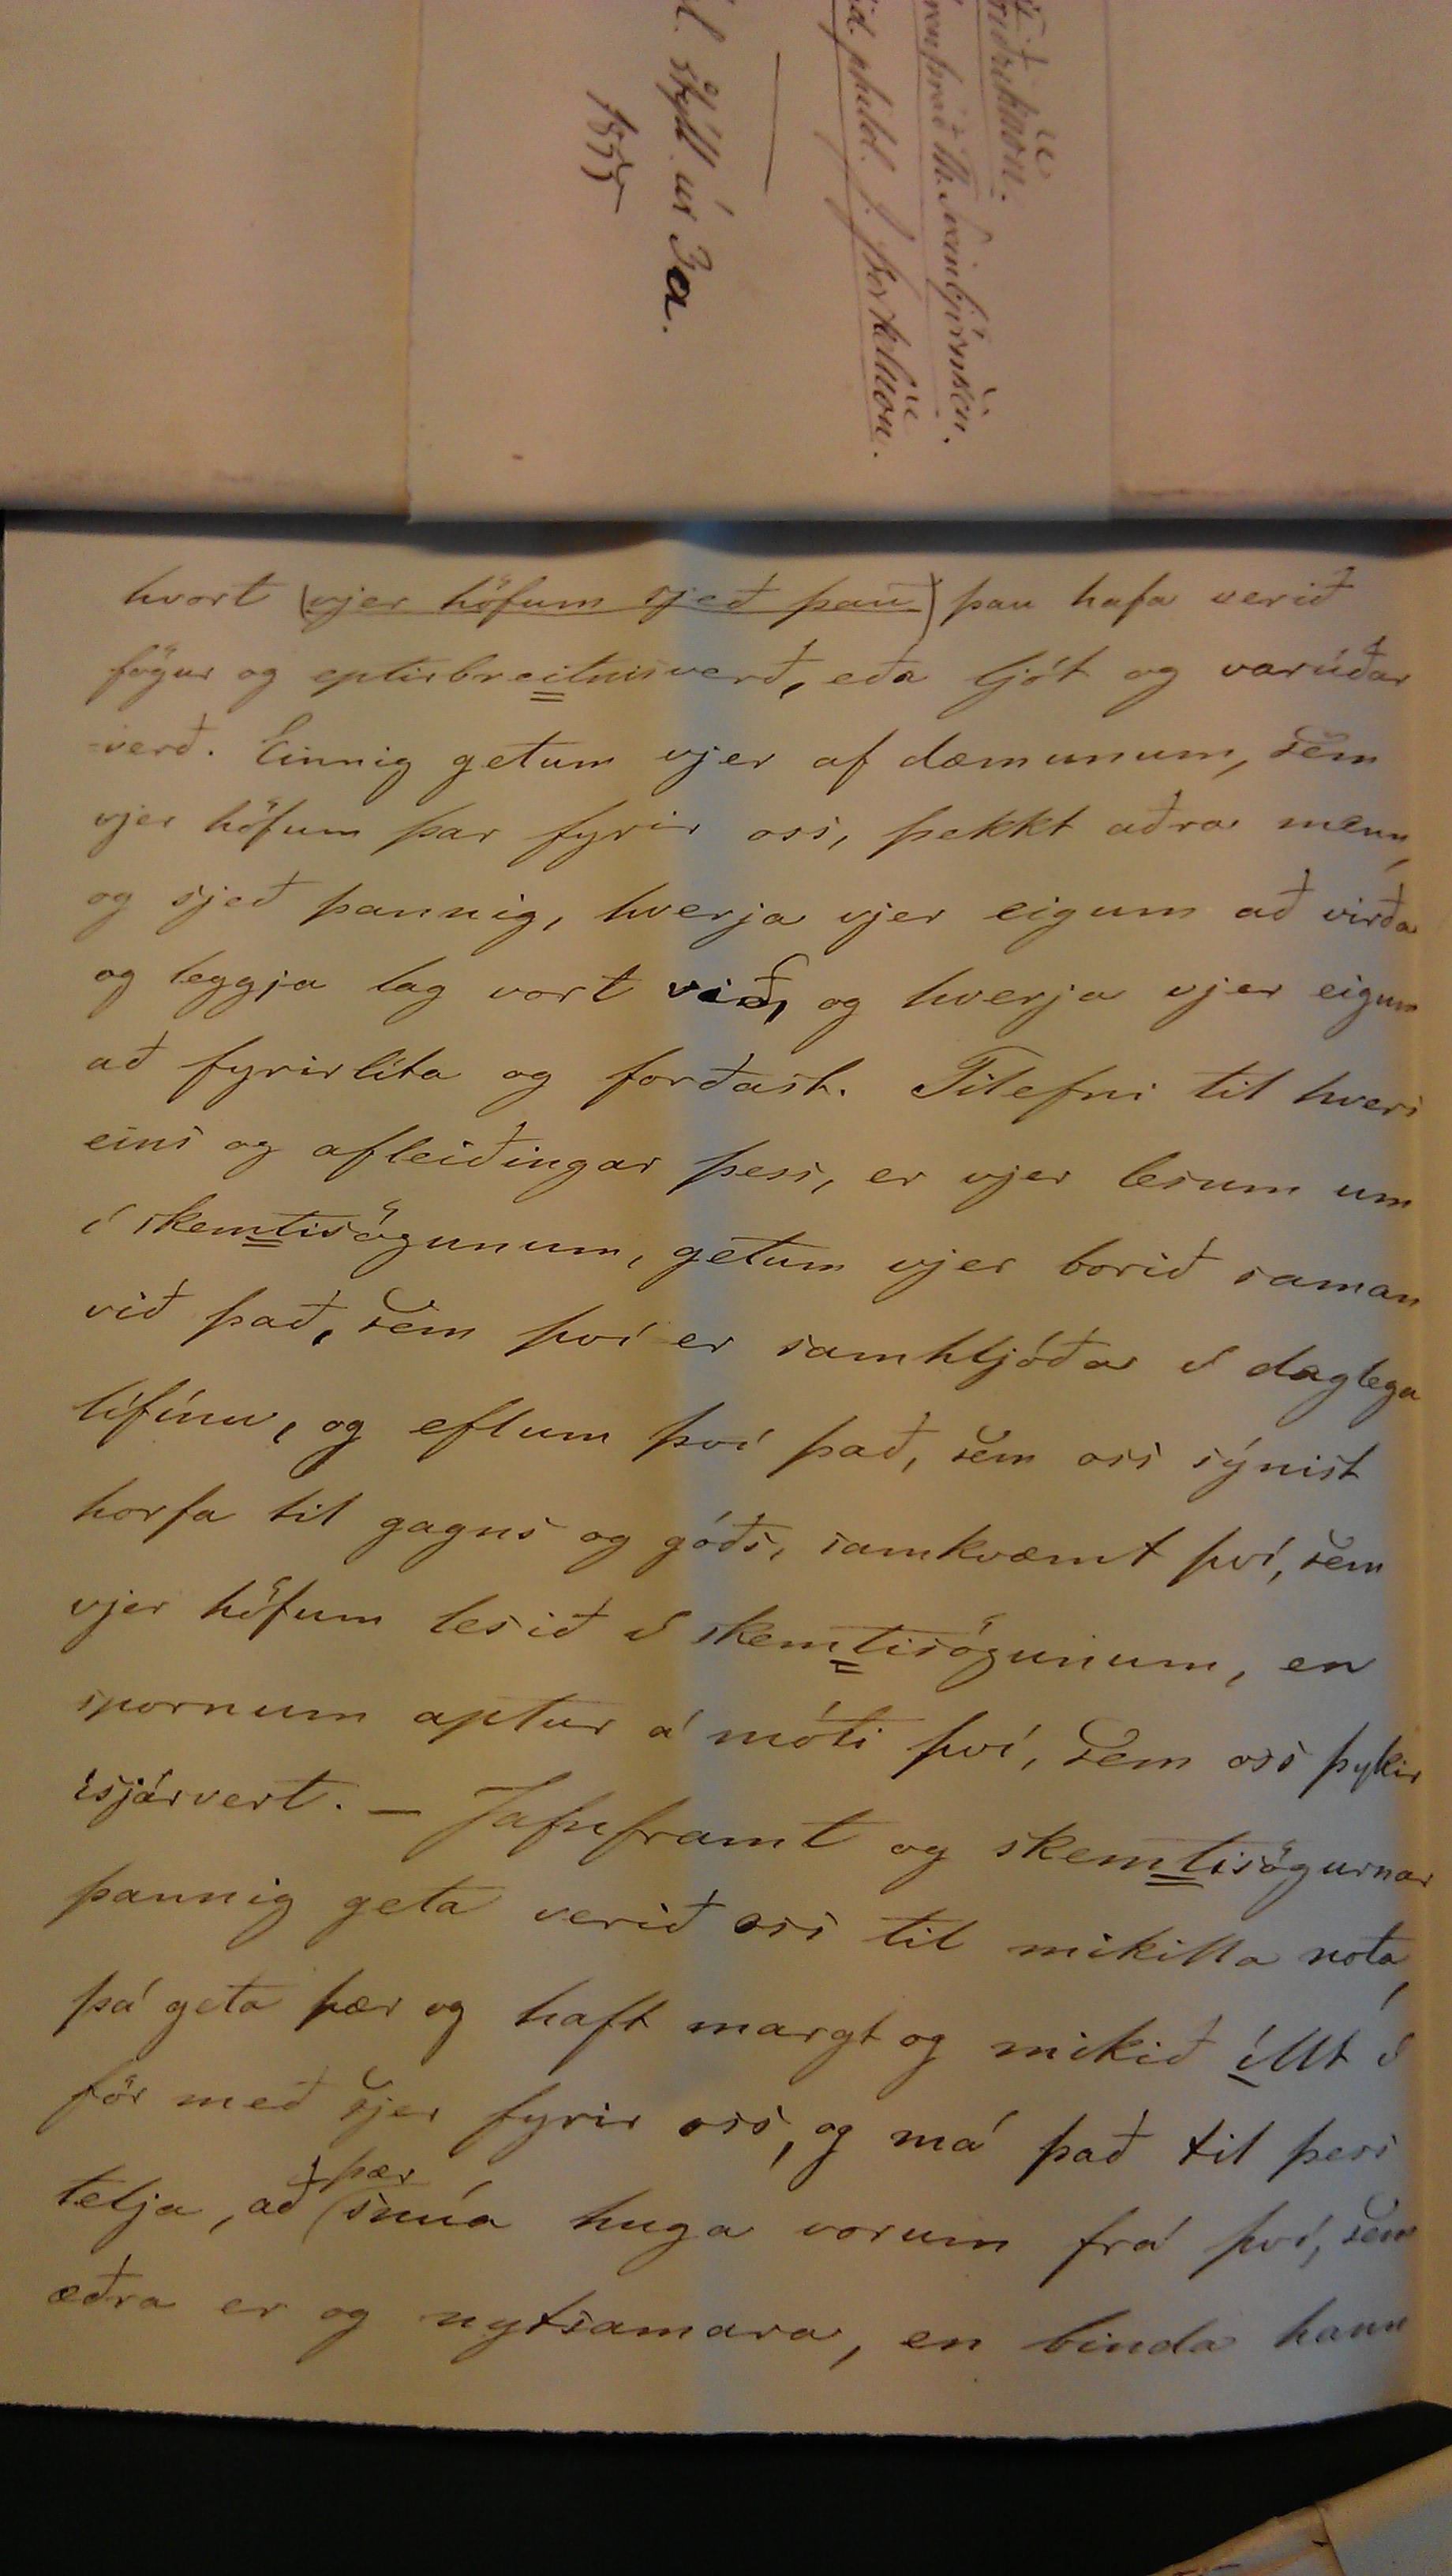 skýll. úr 3a.
hvort (vjer höfum sjeð þau) þau hafa verið
fögur og eptirbreitnisverð, eða ljót og varúðar
-verð. Einnig getum vjer af dæmunum, sem
vjer höfum þar fyrir oss, þekkt aðra menn,
og sjeð þannig, hverja vjer eigum að virða
og leggja lag vort við, og hverja vjer eigum
að fyrirlíta og forðast. Tilefni til hvers
eins og afleiðingar þess, er vjer lesum um
í skemtisögunum, getum vjer borið saman
við það, sem því er samhljóða í daglega
lífinu, og eflum því það, sem oss sýnist
horfa til gagns og góðs, samkvæmt því, sem
vjer höfum lesið í skemtisögunum, en
spornum aptur á móti því, sem oss þykir
ísjárvert. — Jafnframt og skemtisögurnar
þannig geta verið oss til mikilla nota,
þá geta þær og haft margt og mikið íllt í
för með sjer fyrir oss, og má það til þess
telja, að þær snúa huga vorum frá því, sem
æðra er og nytsamara, en binda hann